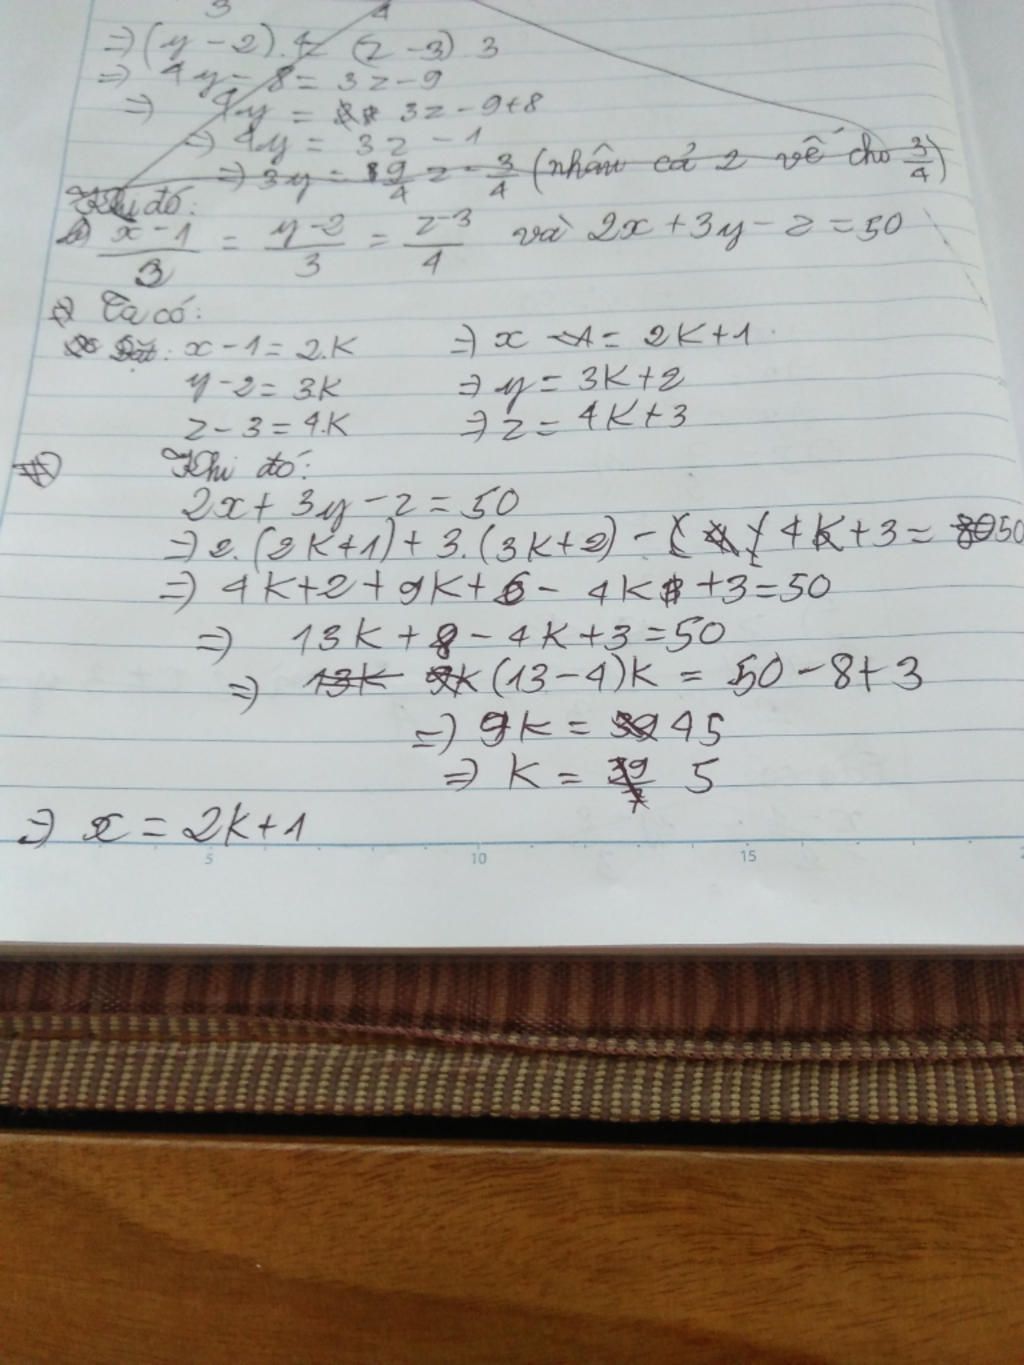 3 4
=> (y - 2) . 4 = (z - 3) 3
=> 4y - 8 = 3z - 9
=> 4y = 3z - 9 + 8
=> 4y = 3z - 1
=> 3y = 9/4 z - 3/4 (nhân cả 2 vế cho 3/4)
Khi đó:
b) x - 1/3 = y - 2/3 = z - 3/4 và 2x + 3y - z = 50
Ta có:
Đặt: x - 1 = 2.K => x = 2K + 1
y - 2 = 3.K => y = 3K + 2
z - 3 = 4.K => z = 4K + 3
Khi đó:
2x + 3y - z = 50
=> 2.(2K+1) + 3.(3K+2) - 4K + 3 = 50
=> 4K + 2 + 9K + 6 - 4K + 3 = 50
=> 13K + 8 - 4K + 3 = 50
=> (13 - 4)K = 50 - 8 + 3
=> 9K = 45
=> K = 5
=> x = 2K + 1
5 10 15